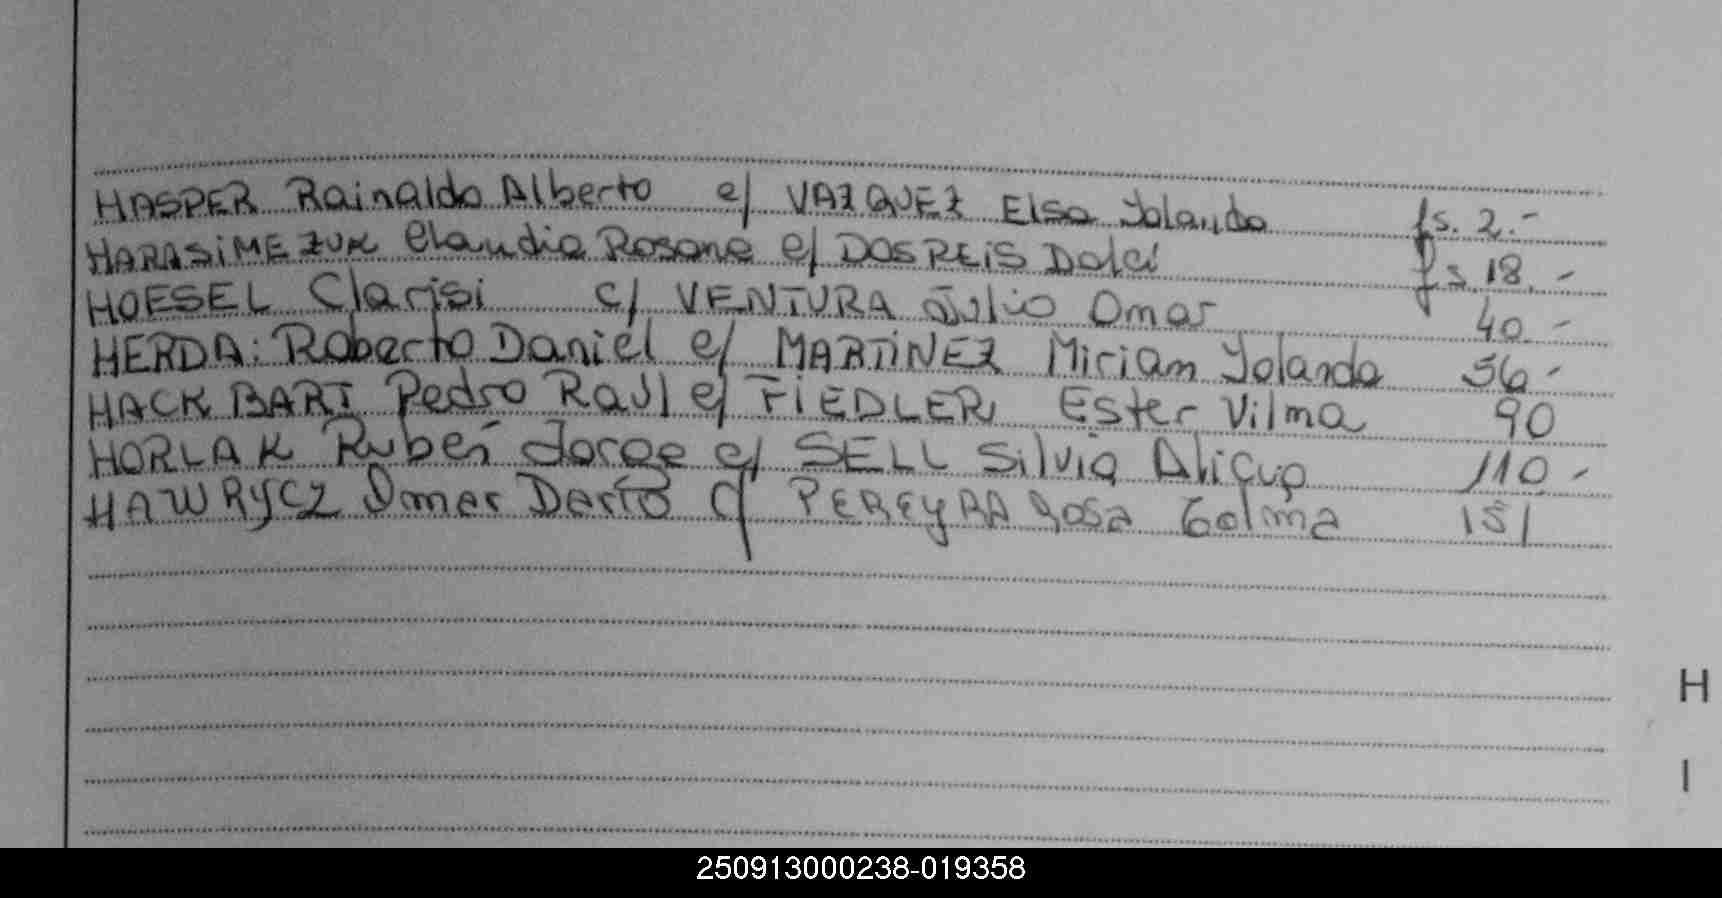 HASPER Rainaldo Alberto c/ VAZQUEZ Elsa Yolanda fs. 2.-
HARASIMEZUK Claudia Rosane c/ DOSREIS Dolci fs. 18.-
HOESEL Clarisi c/ VENTURA Julio Omar 40.-
HERDA: Roberto Daniel c/ MARTiNEZ Miriam Yolanda 56-
HACK BART Pedro Raul c/ FiEDLER Ester Vilma 90
HORLAK Ruben Jorge c/ SELL Silvia 110.-
HAWRYCZ Omar Dario c/ PEREyRA Rosa 151
H
I
250913000238-019358